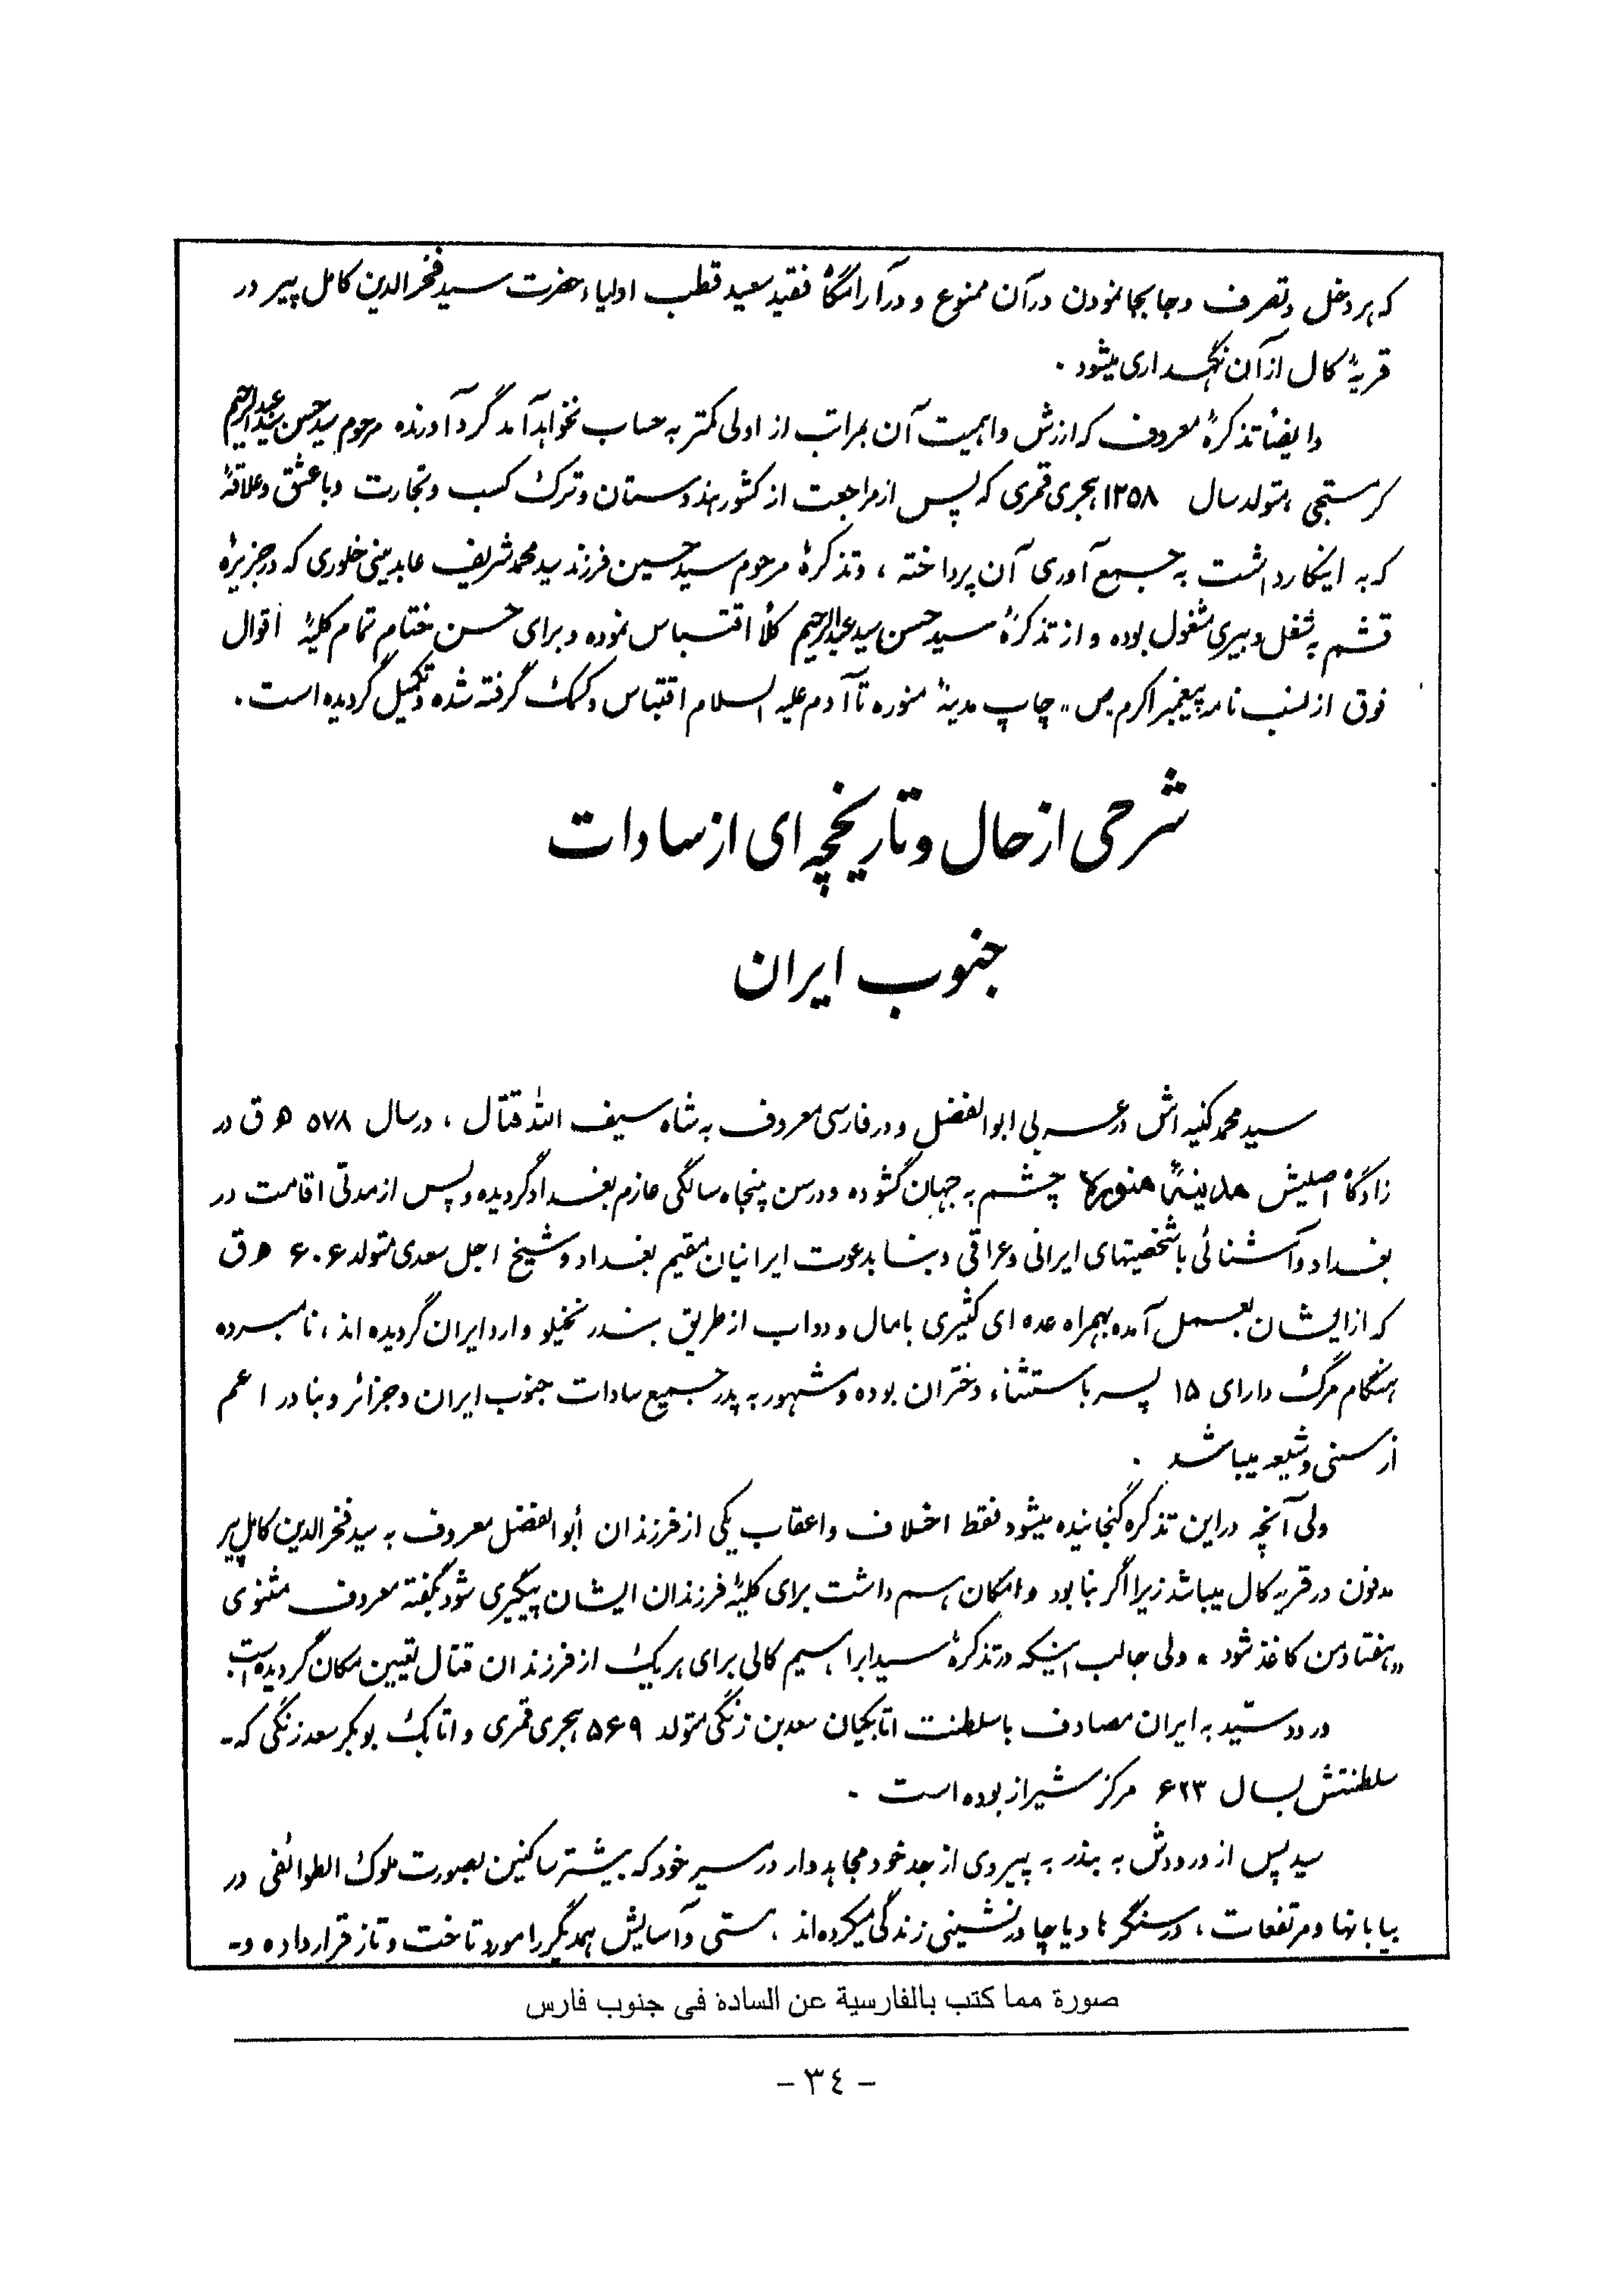 که هر دخل و تصرف و جابجا نمودن در آن ممنوع و در آرامگاهٔ فقید سعید قطب اولیاء حضرت سید فخرالدین کامل پیر در
قریهٔ کال از آن نگهداری میشود .
و ایضاً تذکرهٔ معروف که ارزش و اهمیت آن بمراتب از اولی کمتر به حساب نخواهد آمد گرد آورنده مرحوم سید حسن سید عبدالرحیم
کرمستجی ، متولد سال ۱۲۵۸ هجری قمری که پس از مراجعت از کشور هندوستان و ترک کسب و تجارت و با عشق و علاقهٔ
که به اینکار داشت به جمیع آوری آن پرداخته ، و تذکرهٔ مرحوم سید حسین فرزند سید محمد شریف عابدینی خلوری که در جزیرهٔ
قشم به شغل دبیری مشغول بوده و از تذکرهٔ سید حسن سید عبدالرحیم کلاً اقتباس نموده و برای حسن ختام تمام کلیهٔ اقوال
فوق از نسب نامه پیغمبر اکرم ص ،، چاپ مدینهٔ منوره تا آدم علیه السلام اقتباس و کمک گرفته شده و تکمیل گردیده است .
شرحی از حال و تاریخچه ای از سادات
جنوب ایران
سید محمد کنیه اش در عربی ابوالفضل و در فارسی معروف به شاه سیف الله قتال ، در سال ۵۷۸ ه ق در
زادگاهٔ اصلیش مدینهٔ منوره چشم به جهان گشوده و در سن پنجاه سالگی عازم بغداد گردیده و پس از مدتی اقامت در
بغداد و آشنائی با شخصیتهای ایرانی و عراقی و بنا بدعوت ایرانیان مقیم بغداد و شیخ اجل سعدی متولد ۶۰۶ ه ق
که از ایشان بعمل آمده بهمراه عده ای کثیری با مال و دواب از طریق بندر نخیلو وارد ایران گردیده اند ، نامبرده
هنگام مرگ دارای ۱۵ پسر باستثناء دختران بوده و مشهور به پدر جمیع سادات جنوب ایران و جزائر و بنادر اعم
از سنی و شیعه میباشد .
ولی آنچه در این تذکره گنجانیده میشود فقط اخلاف و اعقاب یکی از فرزندان أبوالفضل معروف به سید فخرالدین کامل پیر
مدفون در قریه کال میباشد زیرا اگر بنا بود و امکان هم داشت برای کلیهٔ فرزندان ایشان پیگیری شود بگفته معروف مثنوی
,, هفتاد من کاغذ شود ، ولی جالب اینکه در تذکرهٔ سید ابراهیم کالی برای هر یک از فرزندان قتال تعیین مکان گردیده است
ورود سید به ایران مصادف با سلطنت اتابکیان سعد بن زنگی متولد ۵۶۹ هجری قمری و اتابک بوبکر سعد زنگی که -
سلطنتش بسال ۶۲۳ مرکز شیراز بوده است .
سید پس از ورودش به بندر به پیروی از جد خود مجاهدوار در مسیر خود که بیشتر ساکنین بصورت ملوک الطوائفی در
بیابانها و مرتفعات ، در سنگرها و یا چادرنشینی زندگی میکرده اند ، ستی و آسایش همدیگر را مورد تاخت و تاز قرار داده و -
صورة مما كتب بالفارسية عن السادة فى جنوب فارس
- ٣٤ -